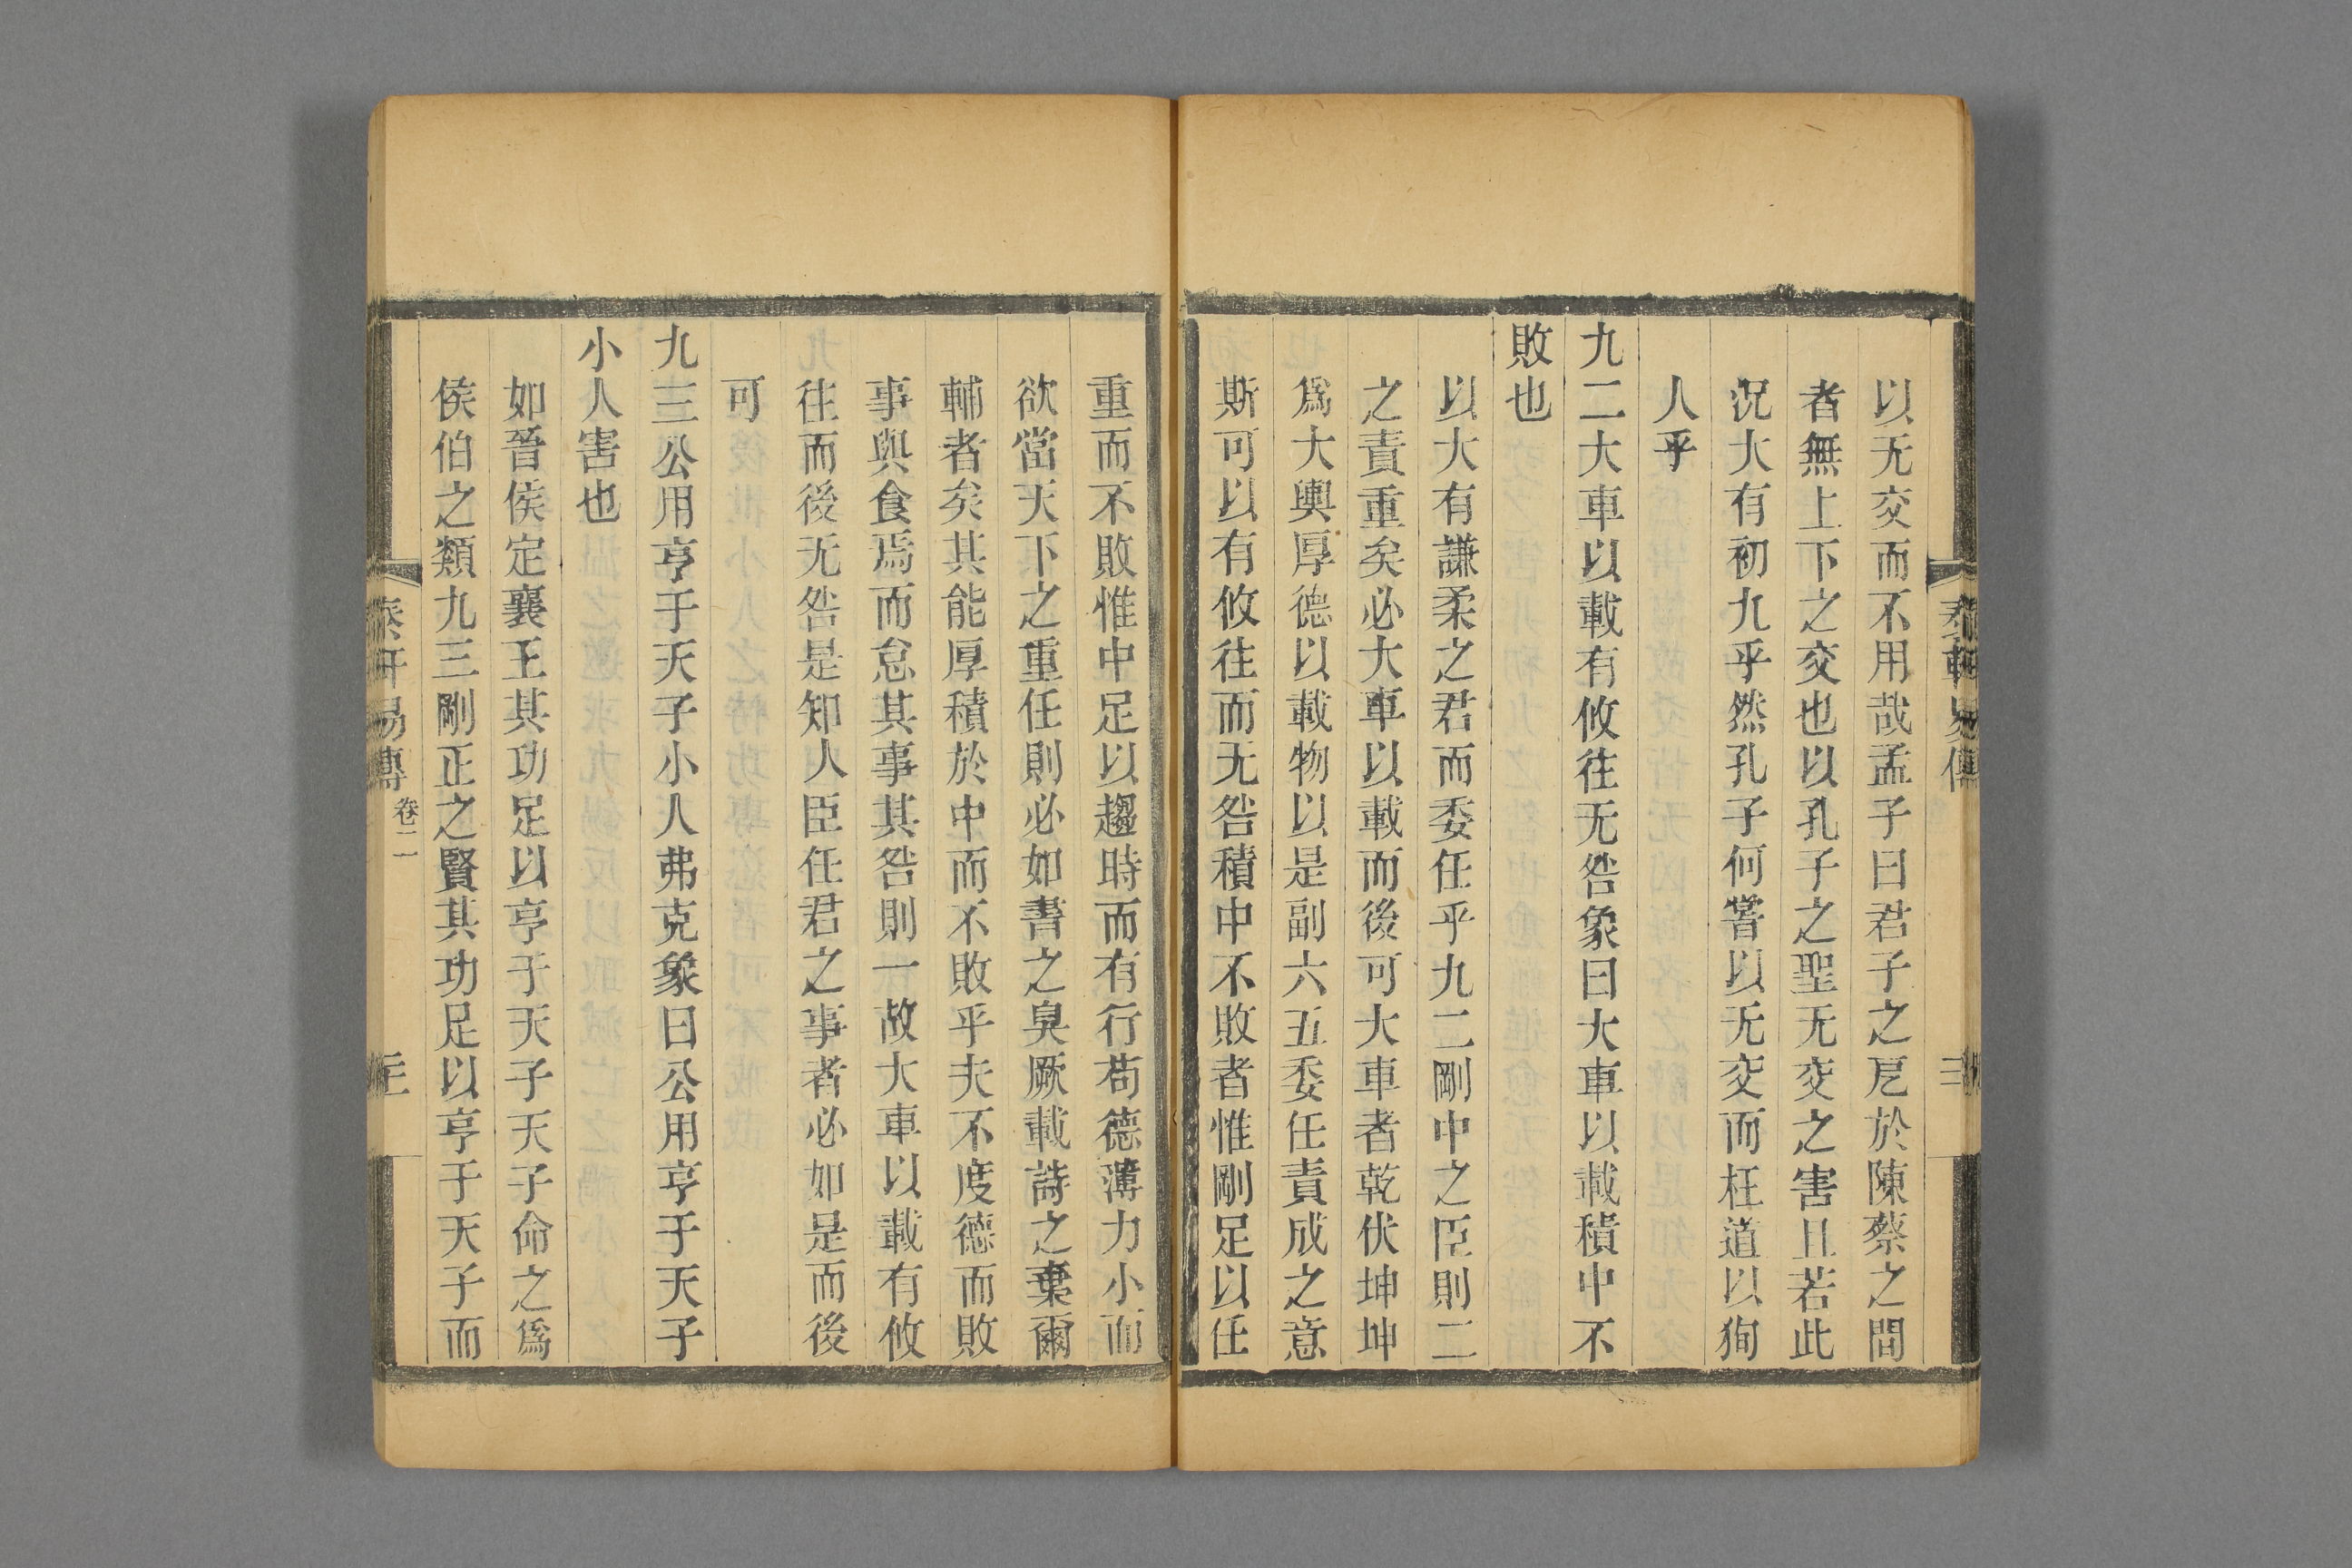 以无交而不用哉孟子曰君子之戹於陳蔡之間
者無上下之交也以孔子之聖无交之害且若此
况大有初九乎然孔子何嘗以无交而枉道以狥
人乎
九二大車以載有攸往无咎象曰大車以載積中不
敗也
以大有謙柔之君而委任乎九二剛中之臣則二
之責重矣必大車以載而後可大車者乾伏坤坤
爲大輿厚德以載物以是副六五委任責成之意
斯可以有攸往而无咎積中不敗者惟剛足以任
重而不敗惟中足以趨時而有行苟德薄力小而
欲當天下之重任則必如書之臭厥載詩之棄爾
輔者矣其能厚積於中而不敗乎夫不度德而敗
事與食焉而怠其事其咎則一故大車以載有攸
往而後无咎是知人臣任君之事者必如是而後
可
九三公用亨于天子小人弗克象曰公用亨于天子
小人害也
如晉侯定襄王其功足以亨于天子天子命之爲
侯伯之類九三剛正之賢其功足以亨于天子而
易傳 卷二